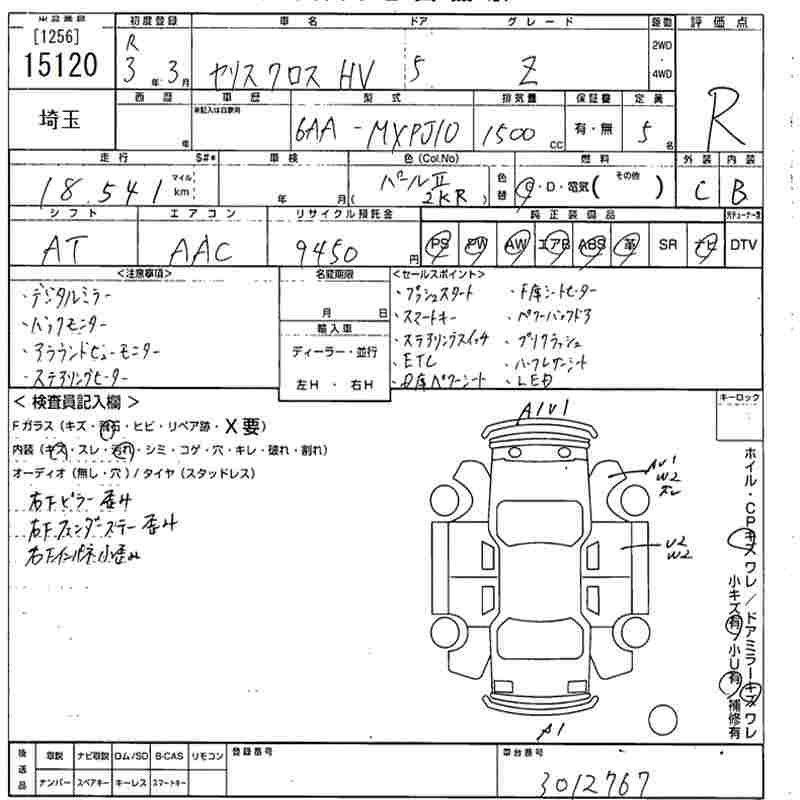 [1256] 初度登録 車名 ドア グレード 駆動 評価点
15120 R 3年 3月 ヤリスクロス HV 5 Z 2WD・4WD R
埼玉 西歴 年 車歴 ※記入は自家用 型式 排気量 保証書 定員
6AA-MXPJ10 1500 CC 有・無 5名
走行 S#* 車検 色(Col.No) 燃料 外装 内装
18,541 マイル km 年 月( パールⅡ 2KR ) 色替 G・D・電気( その他 ) C B
シフト エアコン リサイクル預託金 純正装備品
AT AAC 9450円 PS PW AW エアB ABS 革 SR ナビ DTV
<注意事項> 名変期限 <セールスポイント>
・デジタルミラー 月 日 ・プッシュスタート ・F席シートヒーター
・バックモニター 輸入車 ・スマートキー ・パワーバックドア
・アラウンドビューモニター ディーラー・並行 ・ステアリングスイッチ ・プリクラッシュ
・ステアリングヒーター 左H・右H ・ETC ・ハーフレザーシート
・D席パワーシート ・LED
<検査員記入欄> キーロック
Fガラス(キズ・飛石・ヒビ・リペア跡・X要)
内装(キズ・スレ・汚れ・シミ・コゲ・穴・キレ・破れ・割れ)
オーディオ(無し・穴)/タイヤ(スタッドレス)
右Fピラー歪み
右Fフェンダーステー歪み
右Fインパネ小歪み
A1V1
AV1
W2
U2
W2
A1
ホイル・CPキズ ワレ/ドアミラーキズ ワレ
小キズ有 小U有 補修有
後送品 取説 ナビ取説 ロム/SD B-CAS リモコン 登録番号 車台番号
ナンバー スペアキー キーレス スマートキー 3012767